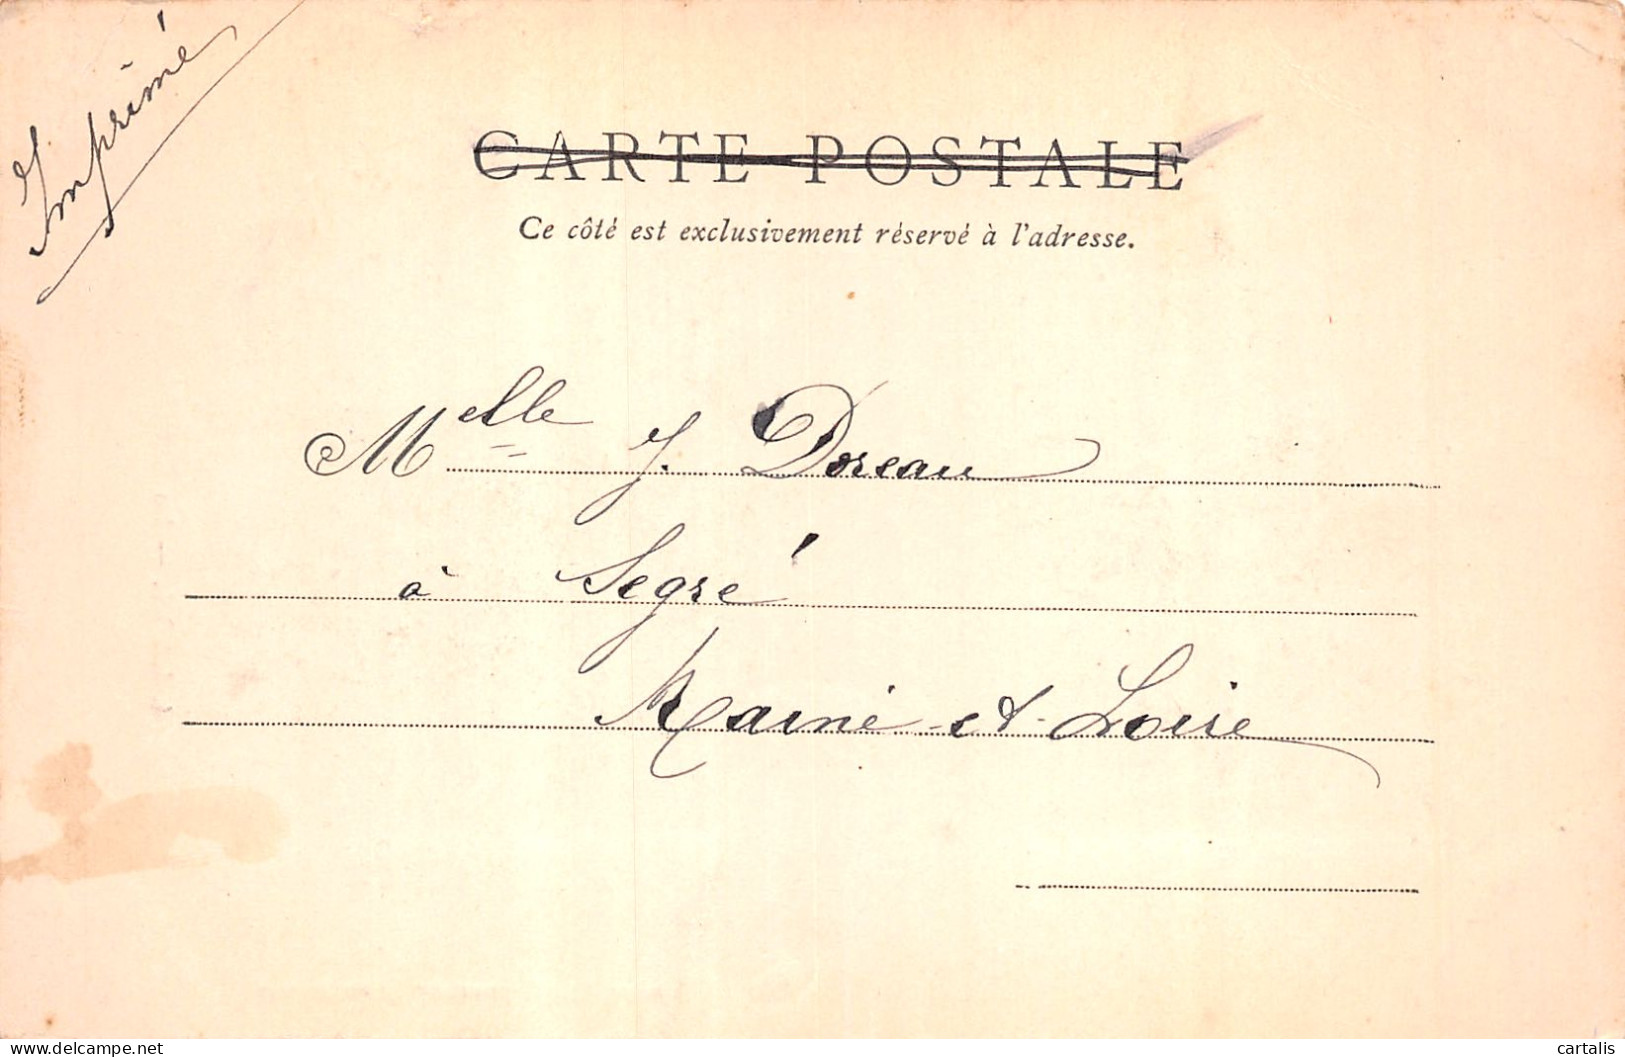 Imprimé
CARTE POSTALE
Ce côté est exclusivement réservé à l'adresse.
Melle J. Doreau
à Segré
Maine-et-Loire
www.delcampe.net
cartalis